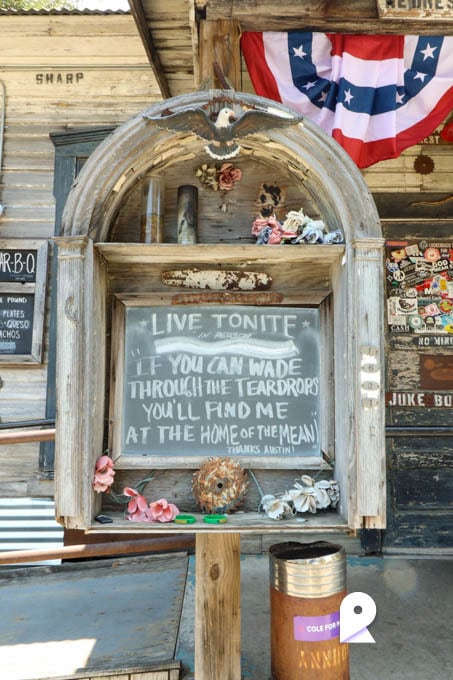 SHARP
LIVE TONITE
IN PERSON
"IF YOU CAN WADE
THROUGH THE TEARDROPS
YOU'LL FIND ME
AT THE HOME OF THE MEAN)"
THANKS AUSTIN!
AR-B-Q
POUND
PLATES
QUESO
ACHOS
CASH
NO MIN
JUKE BO
COLE FOR